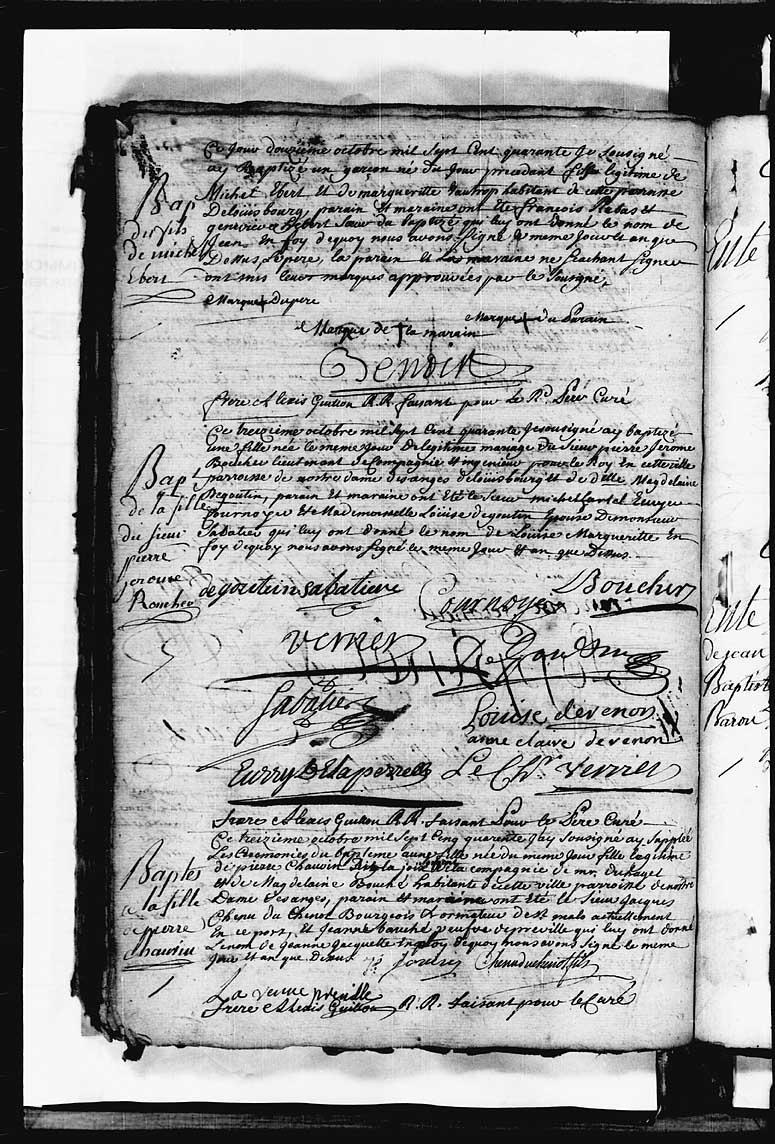 Ce Jour douzieme octobre mil Sept Cent quarante Je Sousigné
ay Baptizé un garcon né du Jour precedant fils legitime de
Michel Ebert Et de margueritte habitant de cette parroisse
Delouisbourg, parain et maraine ont Ete francois Et
genevieve Ebert qui luy ont donné le nom de
Jean En foy dequoy nous avons Signé le meme Jour et an que
Dessus, Le pere, le parain Et la maraine ne Scachant Signer
ont mis leur marques approuvées par le Sousigné,
Bap
du fils
de michel
Ebert
Marque + Du pere
Marque + du Parain
Marque de + la marain
Benoit
frere Alexis Guitton R.R. faisant pour le Rd. Pere Curé
Ce treizieme octobre mil Sept Cent quarante Je sousigné ay baptizé
une fille née le meme Jour de legitime mariage du Sieur pierre Jerome
Boucher lieutenant de Compagnie et ingenieur pour le Roy En cette ville
parroisse de nostre dame des anges de louisbourg et de dlle. Magdelaine
Degoutin, parain Et maraine ont Eté le Sieur michel
Tournoyer Et Mademoiselle Louise degoutin Epouse De monsieur
Sabatier qui luy ont donné le nom de Louise Marguerite En
foy dequoy nous avons Signé le meme Jour Et an que Dessus
Bap
de la fille
du sieur
pierre
jerome
degoutin sabatiere
Boucher
verrier
Sabatier
Louise devenon
anne claire devenon
Le Chr. verrier
frere Alexis Guitton R.R. faisant Pour le Pere Curé
Ce treizieme octobre mil Sept Cinq quarente Jay Sousigné ay Supplée
Les Ceremonies du bapteme a une fille née du meme Jour fille legitime
de pierre Chauvin Dit la joie de la compagnie de mr. Duhaget
et de Magdelaine Bouché habitants de cette ville parroisse de nostre
Dame des anges, parain et maraine ont Eté le Sieur Jacques
Chenu du Chenot Bourgeois Et armateur de st malo actuellement
En ce port, Et Jeanne veufve de preville qui luy ont donné
Le nom de Jeanne Jacquette En foy dequoy nous avons Signé le meme
Jour et an que Dessus
Baptes
de la fille
de pierre
Chauvin
La veuve preville
frere Alexis Guitton R.R. faisant pour le Curé
Ente
Ente
de jean
Baptist
Baron